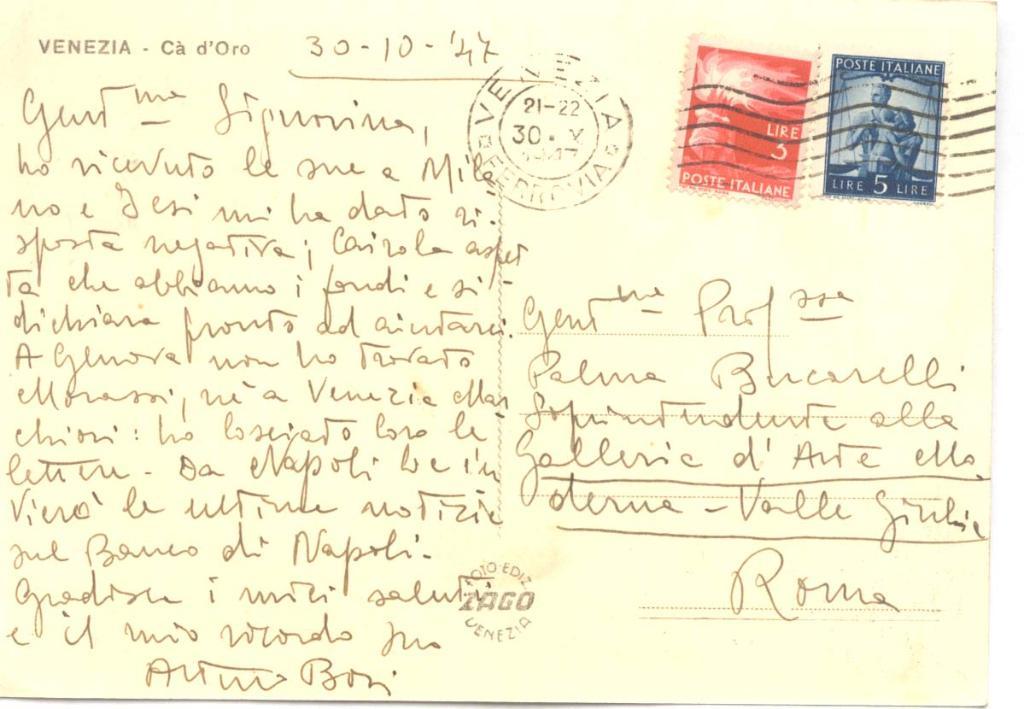 VENEZIA - Cà d'Oro
30-10-'47
Gent ma Signorina,
ho ricevuto le sue a Mila
no e Jesi mi ha dato ri-
sposta negativa; Cairola aspet
ta che abbiamo i fondi e si
dichiara pronto ad aiutarci.
A Genova non ho trovato
Morassi, nè a Venezia Mar
chiori: ho lasciato loro le
lettere - Da Napoli le in
vierò le ultime notizie
sul Banco di Napoli -
Gradisca i miei saluti
e il mio ricordo suo
VENEZIA
FERROVIA
21-22
30 X
LIRE
3
POSTE ITALIANE
POSTE ITALIANE
LIRE 5 LIRE
Gent ma Prof ssa
Palma Bucarelli
Sopintendente alla
Galleria d'Arte Mo
derna - Valle Giulia
Roma
FOTO-EDIZ
ZAGO
VENEZIA